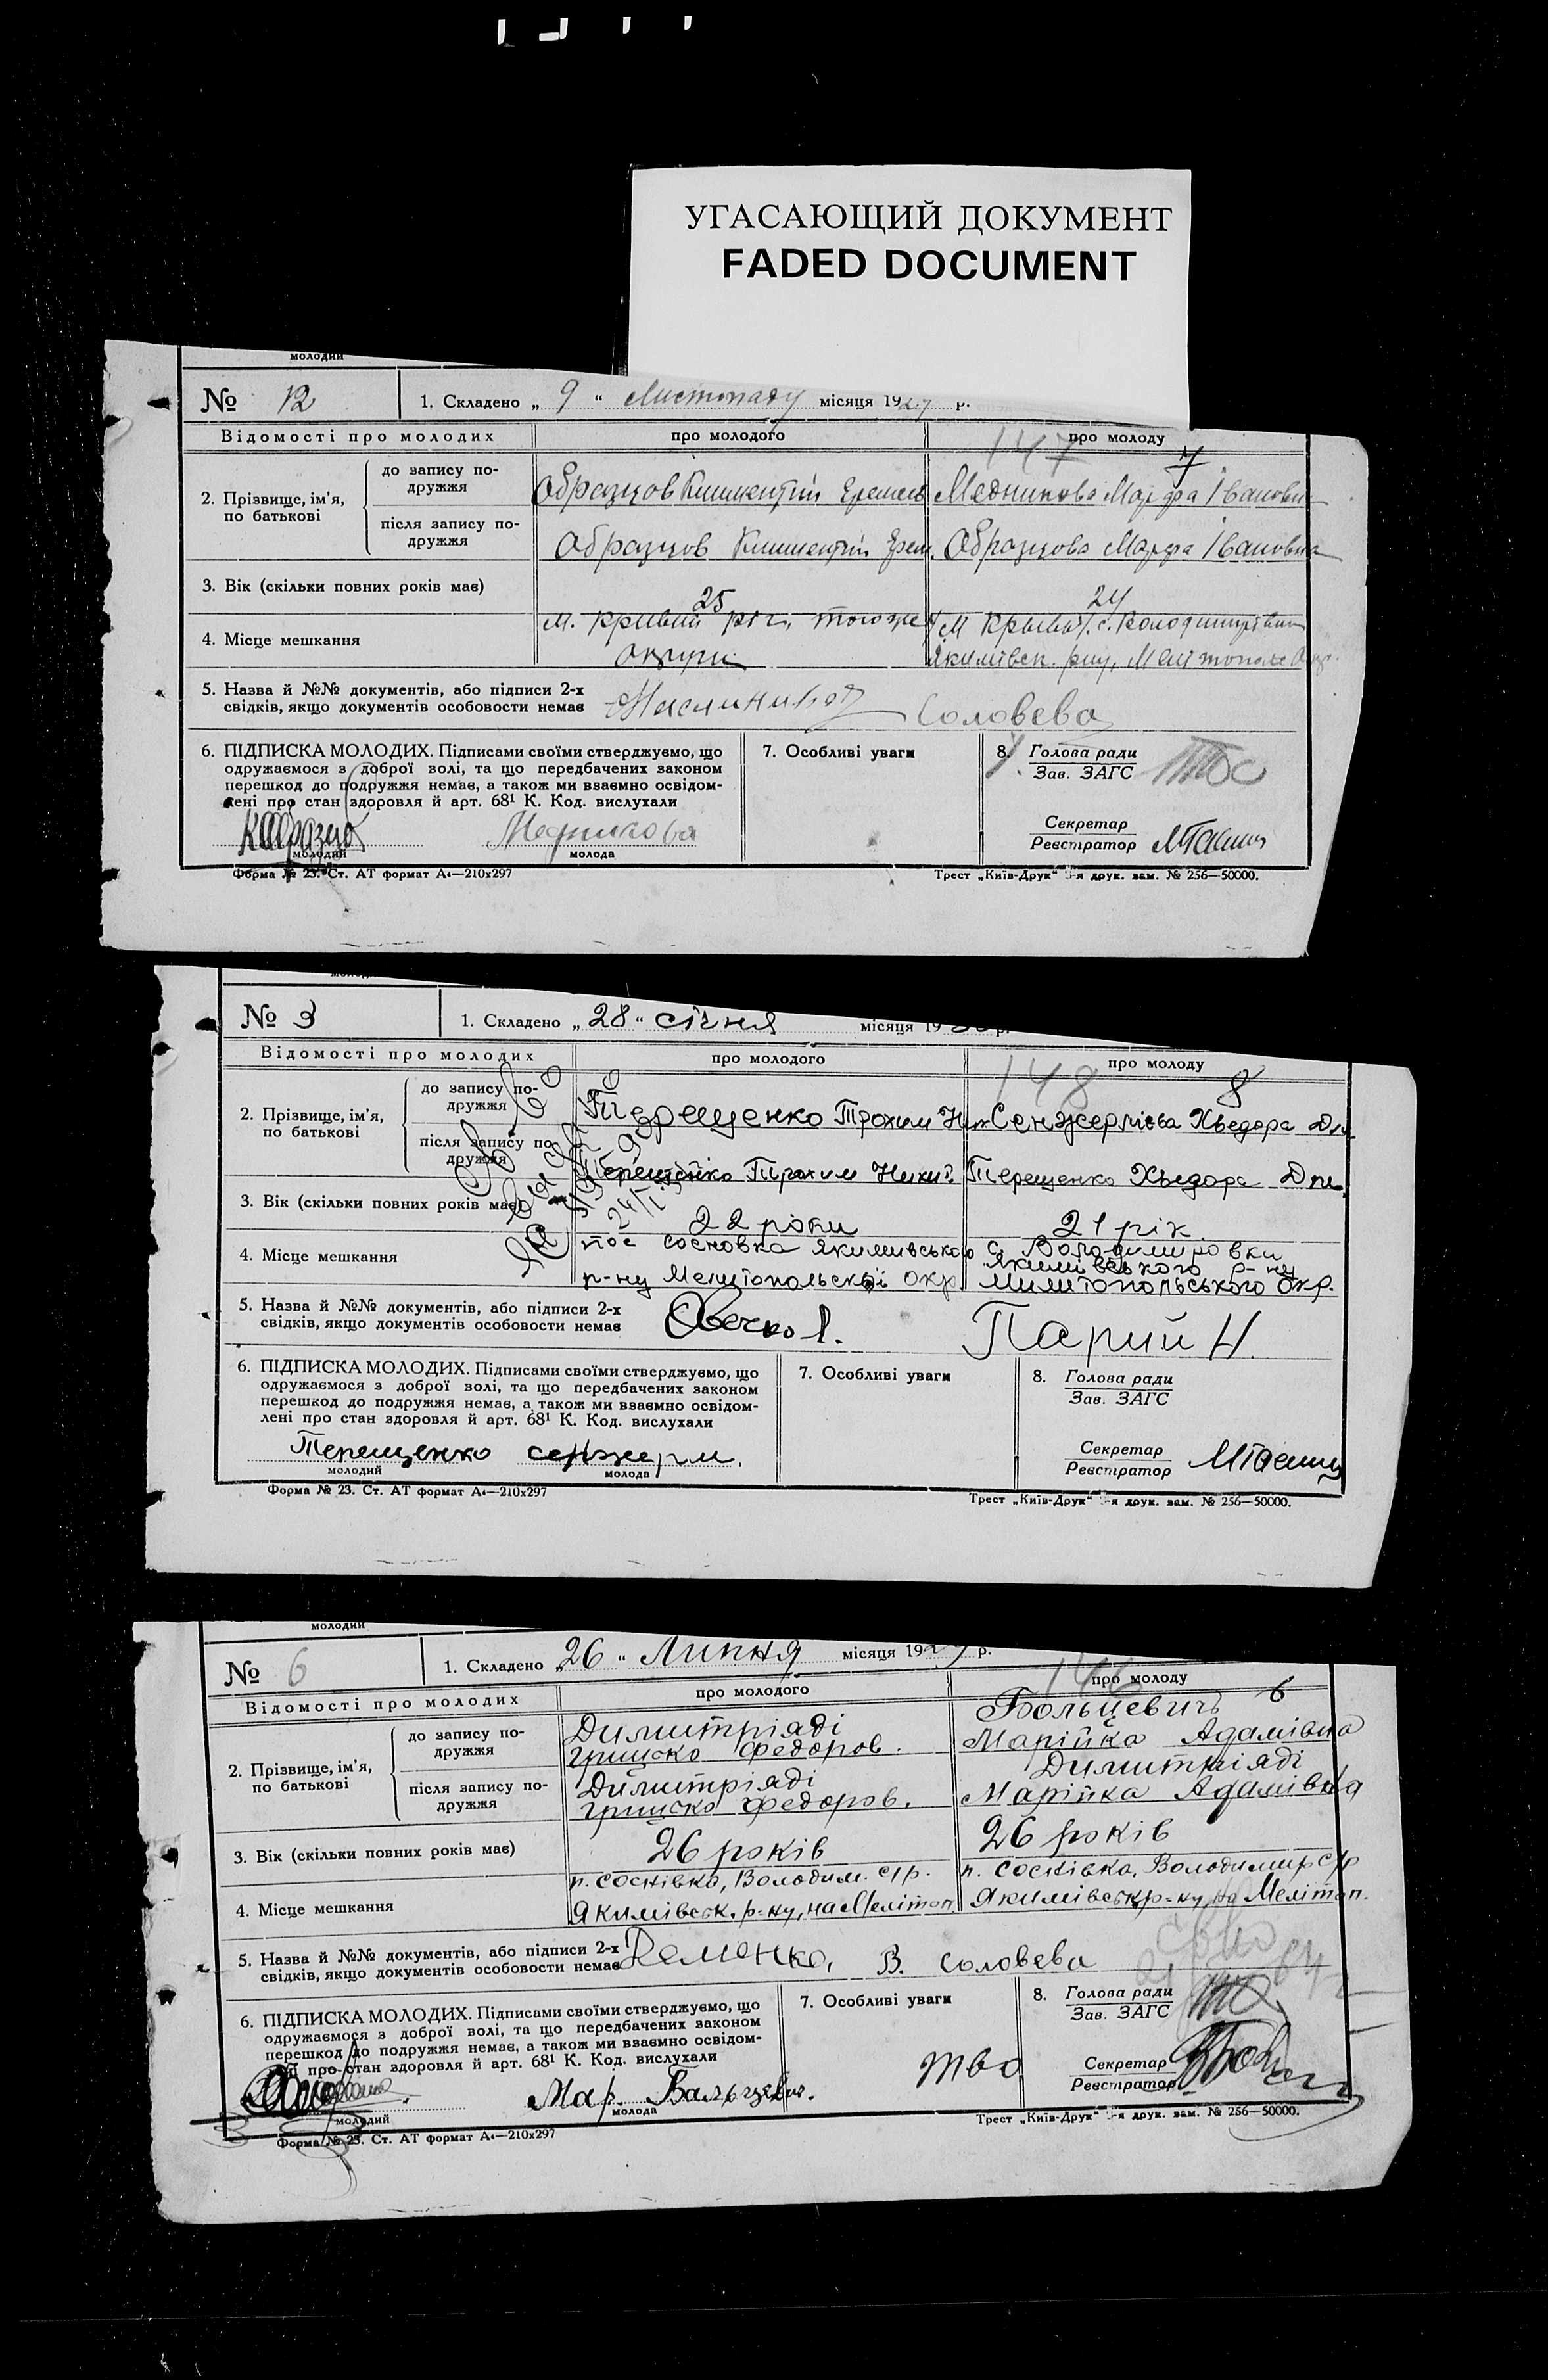 УГАСАЮЩИЙ ДОКУМЕНТ
FADED DOCUMENT
молодий
№ 12
1. Складено „ 9 “ Листопаду місяця 1929 р.
Відомості про молодих
про молодого
про молоду
147
7
2. Прізвище, ім'я, по батькові
до запису по-
дружжя
Образцов Климентій Еремеев
Медникова Марфа Івановна
після запису по-
дружжя
Образцов Климентій Ерем.
Образцова Марфа Івановна
3. Вік (скільки повних років має)
25
24
4. Місце мешкання
м. Кривий ріг, тогоже
округи
с. Володимирівки
Якимівськ. рну, Мелітопольс Окр.
5. Назва й №№ документів, або підписи 2-х
свідків, якщо документів особовости немає
Соловева
6. ПІДПИСКА МОЛОДИХ. Підписами своїми стверджуємо, що
одружаємося з доброї волі, та що передбачених законом
перешкод до подружжя немає, а також ми взаємно освідом-
лені про стан здоровля й арт. 68¹ К. Код. вислухали
Медникова
молодий
молода
7. Особливі уваги
8. Голова ради
Зав. ЗАГС
Секретар
Реєстратор
Форма № 23. Ст. АТ формат А₄—210x297
Трест „Київ-Друк“ -я друк. зам. № 256—50000.
№ 3
1. Складено „ 28 “ січня місяця 1930 р.
Відомості про молодих
про молодого
про молоду
148
8
2. Прізвище, ім'я, по батькові
до запису по-
дружжя
Терещенко Трохим Ник
Сенжерлієва Хведора Дм.
після запису по-
дружжя
Терещенко Трохим Ники.
Терещенко Хведора Дми.
3. Вік (скільки повних років має)
22 роки
21 рік
4. Місце мешкання
пос сосновка Якимивського
р-ну Мелитопольскої окр
с. Володимировки
Якимівського р-ну
Милитопольського Окр.
5. Назва й №№ документів, або підписи 2-х
свідків, якщо документів особовости немає
Овечко І.
Парий Н.
6. ПІДПИСКА МОЛОДИХ. Підписами своїми стверджуємо, що
одружаємося з доброї волі, та що передбачених законом
перешкод до подружжя немає, а також ми взаємно освідом-
лені про стан здоровля й арт. 68¹ К. Код. вислухали
Терещенко
сенжерли.
молодий
молода
7. Особливі уваги
8. Голова ради
Зав. ЗАГС
Секретар
Реєстратор
Форма № 23. Ст. АТ формат А₄—210x297
Трест „Київ-Друк“ -я друк. зам. № 256—50000.
молодий
№ 6
1. Складено „ 26 “ Липня місяця 1929 р.
Відомості про молодих
про молодого
про молоду
146
6
2. Прізвище, ім'я, по батькові
до запису по-
дружжя
Димитріяді
Грицско Федоров.
Больцевичъ
Марійка Адамівна
після запису по-
дружжя
Димитріяді
Грицско Федоров.
Димитріяді
Марійка Адамівна
3. Вік (скільки повних років має)
26 років
26 років
4. Місце мешкання
п. Соснівка, Володим. с/р.
Якимівськ. р-ну, на Мелітоп.
п. Соснівка, Володимир с/р
Якимівськ р-ну, на Мелітоп.
5. Назва й №№ документів, або підписи 2-х
свідків, якщо документів особовости немає
Деменко,
В. Соловева
6. ПІДПИСКА МОЛОДИХ. Підписами своїми стверджуємо, що
одружаємося з доброї волі, та що передбачених законом
перешкод до подружжя немає, а також ми взаємно освідом-
лені про стан здоровля й арт. 68¹ К. Код. вислухали
Мар. Бальцевич.
молодий
молода
7. Особливі уваги
8. Голова ради
Зав. ЗАГС
Секретар
Реєстратор
Форма № 23. Ст. АТ формат А₄—210x297
Трест „Київ-Друк“ -я друк. зам. № 256—50000.